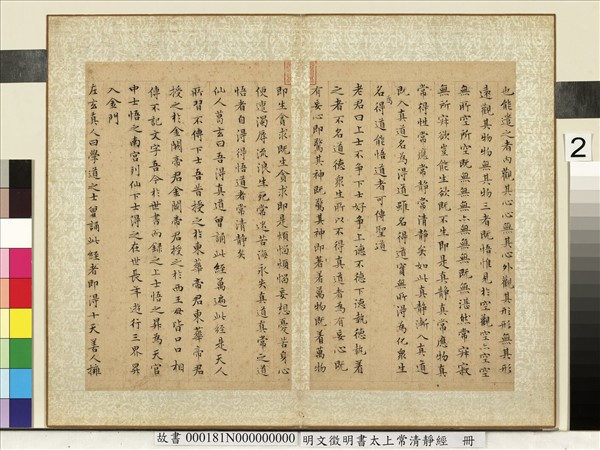 也能遣之者內觀其心心無其心外觀其形形無其形
遠觀其物物無其物三者既悟惟見於空觀空亦空空
無所空所空既無無無亦無無無既無湛然常寂寂
無所寂欲豈能生欲既不生即是真靜真常應物真
常得性常應常靜常清靜矣如此真靜漸入真道
既入真道名為得道雖名得道實無所得為化眾生
為名得道能悟道者可傳聖道
老君曰上士不爭下士好爭上德不德下德執德執着
之者不名道德眾生所以不得真道者為有妄心既
有妄心即驚其神既驚其神即著萬物既着萬物
即生貪求既生貪求即是煩惱煩惱妄想憂苦身心
便遭濁辱流浪生死常沉苦海永失真道真常之道
悟者自得得悟道者常清靜矣
仙人葛玄曰吾得真道曾誦此經萬遍此經是天人
所習不傳下士吾昔授之於東華帝君東華帝君
授之於金闕帝君金闕帝君授之於西王母皆口口相
傳不記文字吾今於世書而錄之上士悟之昇為天官
中士悟之南宮列仙下士得之在世長年遊行三界昇
入金門
左玄真人曰學道之士曾誦此經者即得十天善人擁
2
故書 000181N000000000 明文徵明書太上常清靜經 冊